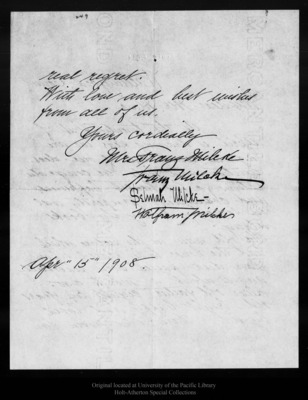 real regret.
With love and best wishes
from all of us.
Yours cordially
Mrs. Franz Wilcke
Franz Wilcke
Selmah Wilcke
Wolfram Wilcke
Apr 15" 1908.
Original located at University of the Pacific Library
Holt-Atherton Special Collections